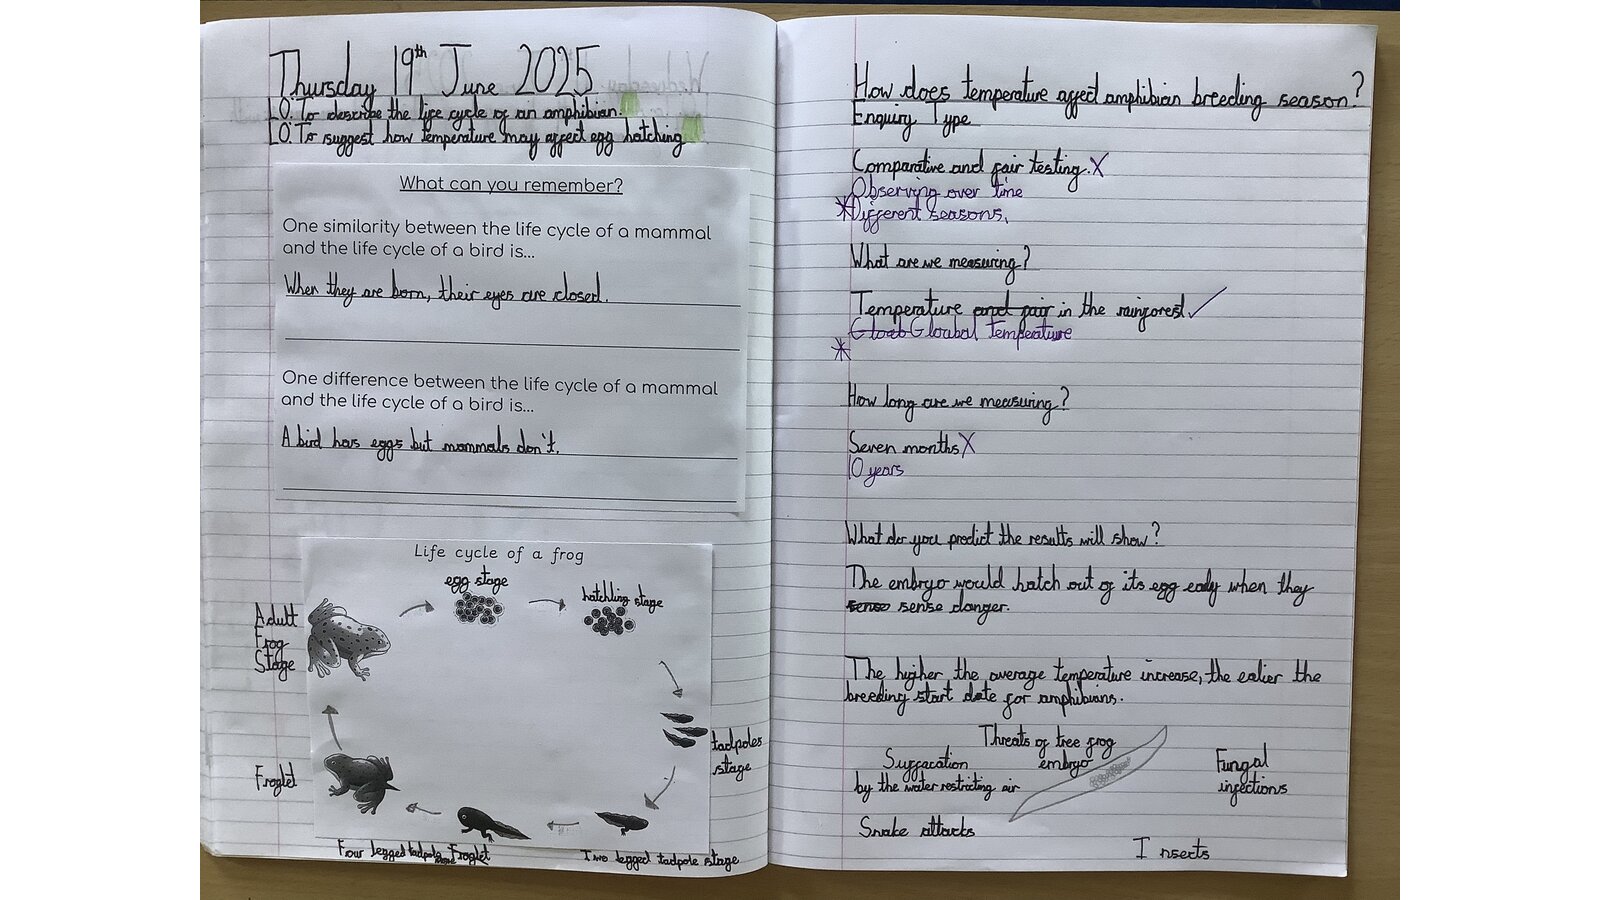 Thursday 19th June 2025
LO: To describe the life cycle of an amphibian.
LO: To suggest how temperature may affect egg hatching
What can you remember?
One similarity between the life cycle of a mammal
and the life cycle of a bird is...
When they are born, their eyes are closed.
One difference between the life cycle of a mammal
and the life cycle of a bird is...
A bird has eggs but mammals don't.
Life cycle of a frog
egg stage
hatchling stage
Adult
Frog
Stage
tadpoles
stage
Froglet
Four legged tadpole Froglet
Two legged tadpole stage
How does temperature affect amphibian breeding season?
Enquiry Type
Comparative and fair testing. X
Observing over time
*Different seasons.
What are we measuring?
Temperature and fair in the rainforest ✓
Gloab Gloabal temperature
*
How long are we measuring?
Seven months X
10 years
What do you predict the results will show?
The embryo would hatch out of its egg early when they
sense sense danger.
The higher the average temperature increase, the ealier the
breeding start date for amphibians.
Threats of tree frog
embryo
Suffacation
by the water restricting air
Fungal
infections
Snake attacks
Insects